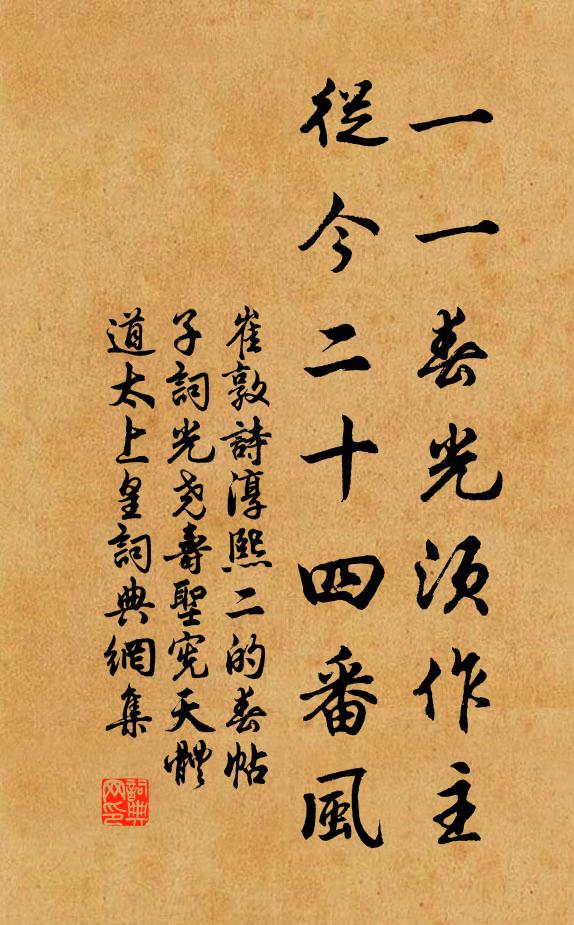 一一春光須作主
從今二十四番風
崔敦詩淳熙二的春帖
子詞光堯壽聖憲天體
道太上皇詞典網集
詞典
网印